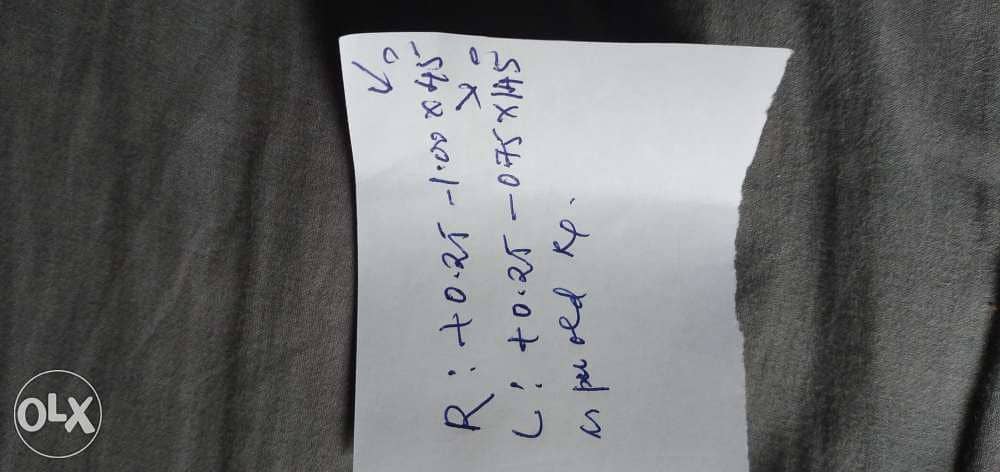 R: +0.25 -1.00 x 45°
L: +0.25 - 0.75 x 145°
as per old Rp.
OLX